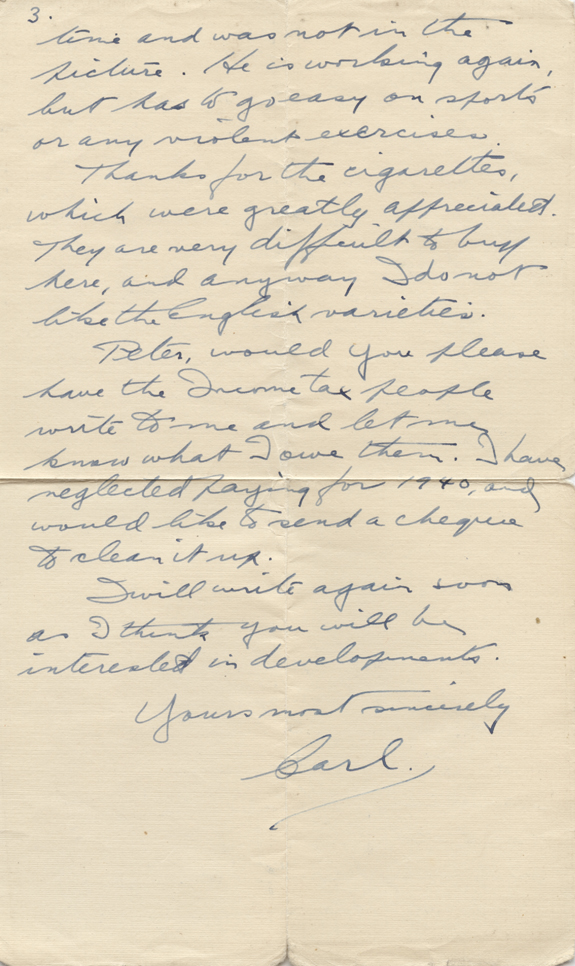 3.
time and was not in the
picture. He is working again,
but has to go easy on sports
or any violent exercises.
Thanks for the cigarettes,
which were greatly appreciated.
They are very difficult to buy
here, and anyway I do not
like the English varieties.
Peter, would you please
have the Income tax people
write to me and let me
know what I owe them. I have
neglected paying for 1940, and
would like to send a cheque
to clean it up.
I will write again soon
as I think you will be
interested in developments.
Yours most sincerely
Carl.